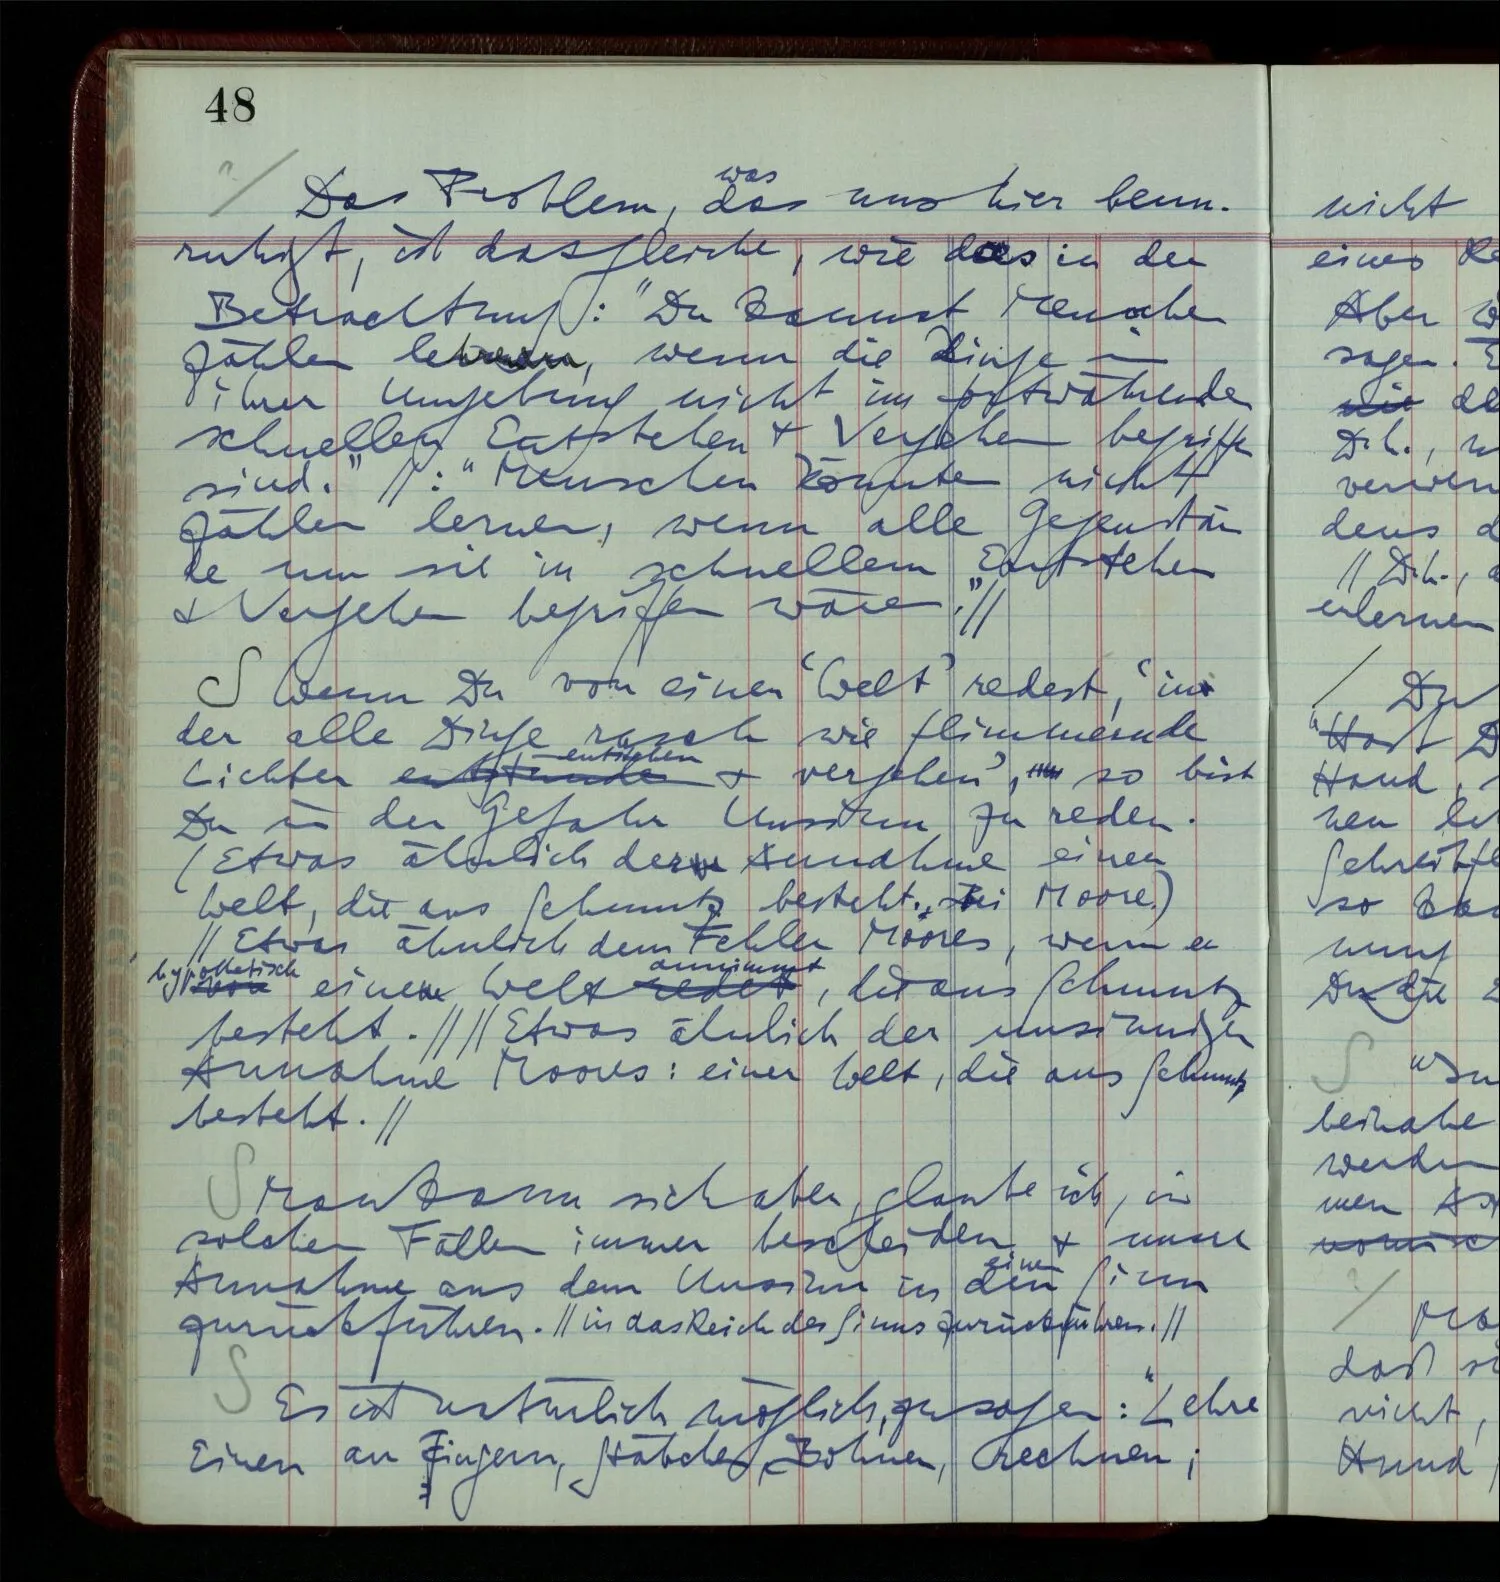 48
?/ Das Problem, das was uns hier beun-
ruhigt, ist dasgleiche, wie das in der
Betrachtung: "Du kannst Menschen
zählen lehren, wenn die Dinge in
ihrer Umgebung nicht im fortwährenden
schnellen Entstehen & Vergehen begriffen
sind." //: "Menschen könnten nicht
zählen lernen, wenn alle Gegenstän
de um sie in schnellem Entstehen
& Vergehen begriffen wären."//
S Wenn Du von einer 'Welt' redest, 'in
der alle Dinge rasch wie flimmernde
Lichter entstünden entstehen & vergehen', so bist
Du in der Gefahr Unsinn zu reden.
(Etwas ähnlich der Annahme einer
Welt, die aus Schmutz besteht, bei Moore.)
//Etwas ähnlich dem Fehler Moores, wenn er
von hypothetisch eine Welt redet annimmt, die aus Schmutz
besteht.// //Etwas ähnlich der unsinnigen
Annahme Moores: einer Welt, die aus Schmutz
besteht.//
S Man kann sich aber, glaube ich, in
solchen Fällen immer bescheiden & unsre
Annahme aus dem Unsinn in den einen Sinn
zurückführen. //in das Reich des Sinns zurückführen.//
S
Es ist natürlich möglich, zu sagen: "Lehre
Einen an Fingern, Stäbchen, Bohnen, rechnen;
nicht
eines Re
Aber w
sagen. E
nie de
D.h., w
verwen
dens d
// D.h., d
erlernen
/ Du
"Hast D
Hand,
nen le
so kan
nung
Du die
S
beinahe
werden
men
/ Ma
daß si
nicht,
Hund,